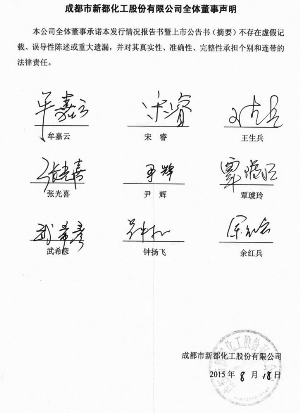 成都市新都化工股份有限公司全体董事声明
本公司全体董事承诺本次发行情况报告书暨上市公告书（摘要）不存在虚假记
载、误导性陈述或重大遗漏，并对其真实性、准确性、完整性承担个别和连带的
法律责任。
牟嘉云 宋睿 王生兵
牟嘉云 宋 睿 王生兵
张光喜 尹辉 覃琥玲
张光喜 尹 辉 覃琥玲
武希彦 钟扬飞 余红兵
武希彦 钟扬飞 余红兵
成都市新都化工股份有限公司
2015年 8 月 18日